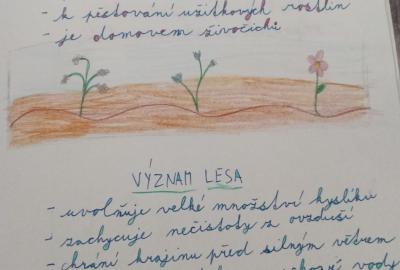 - k pěstování užitkových rostlin
- je domovem živočichů
VÝZNAM LESA
- uvolňuje velké množství kyslíku
- zachycuje nečistoty z ovzduší
- chrání krajinu před silným větrem
vody